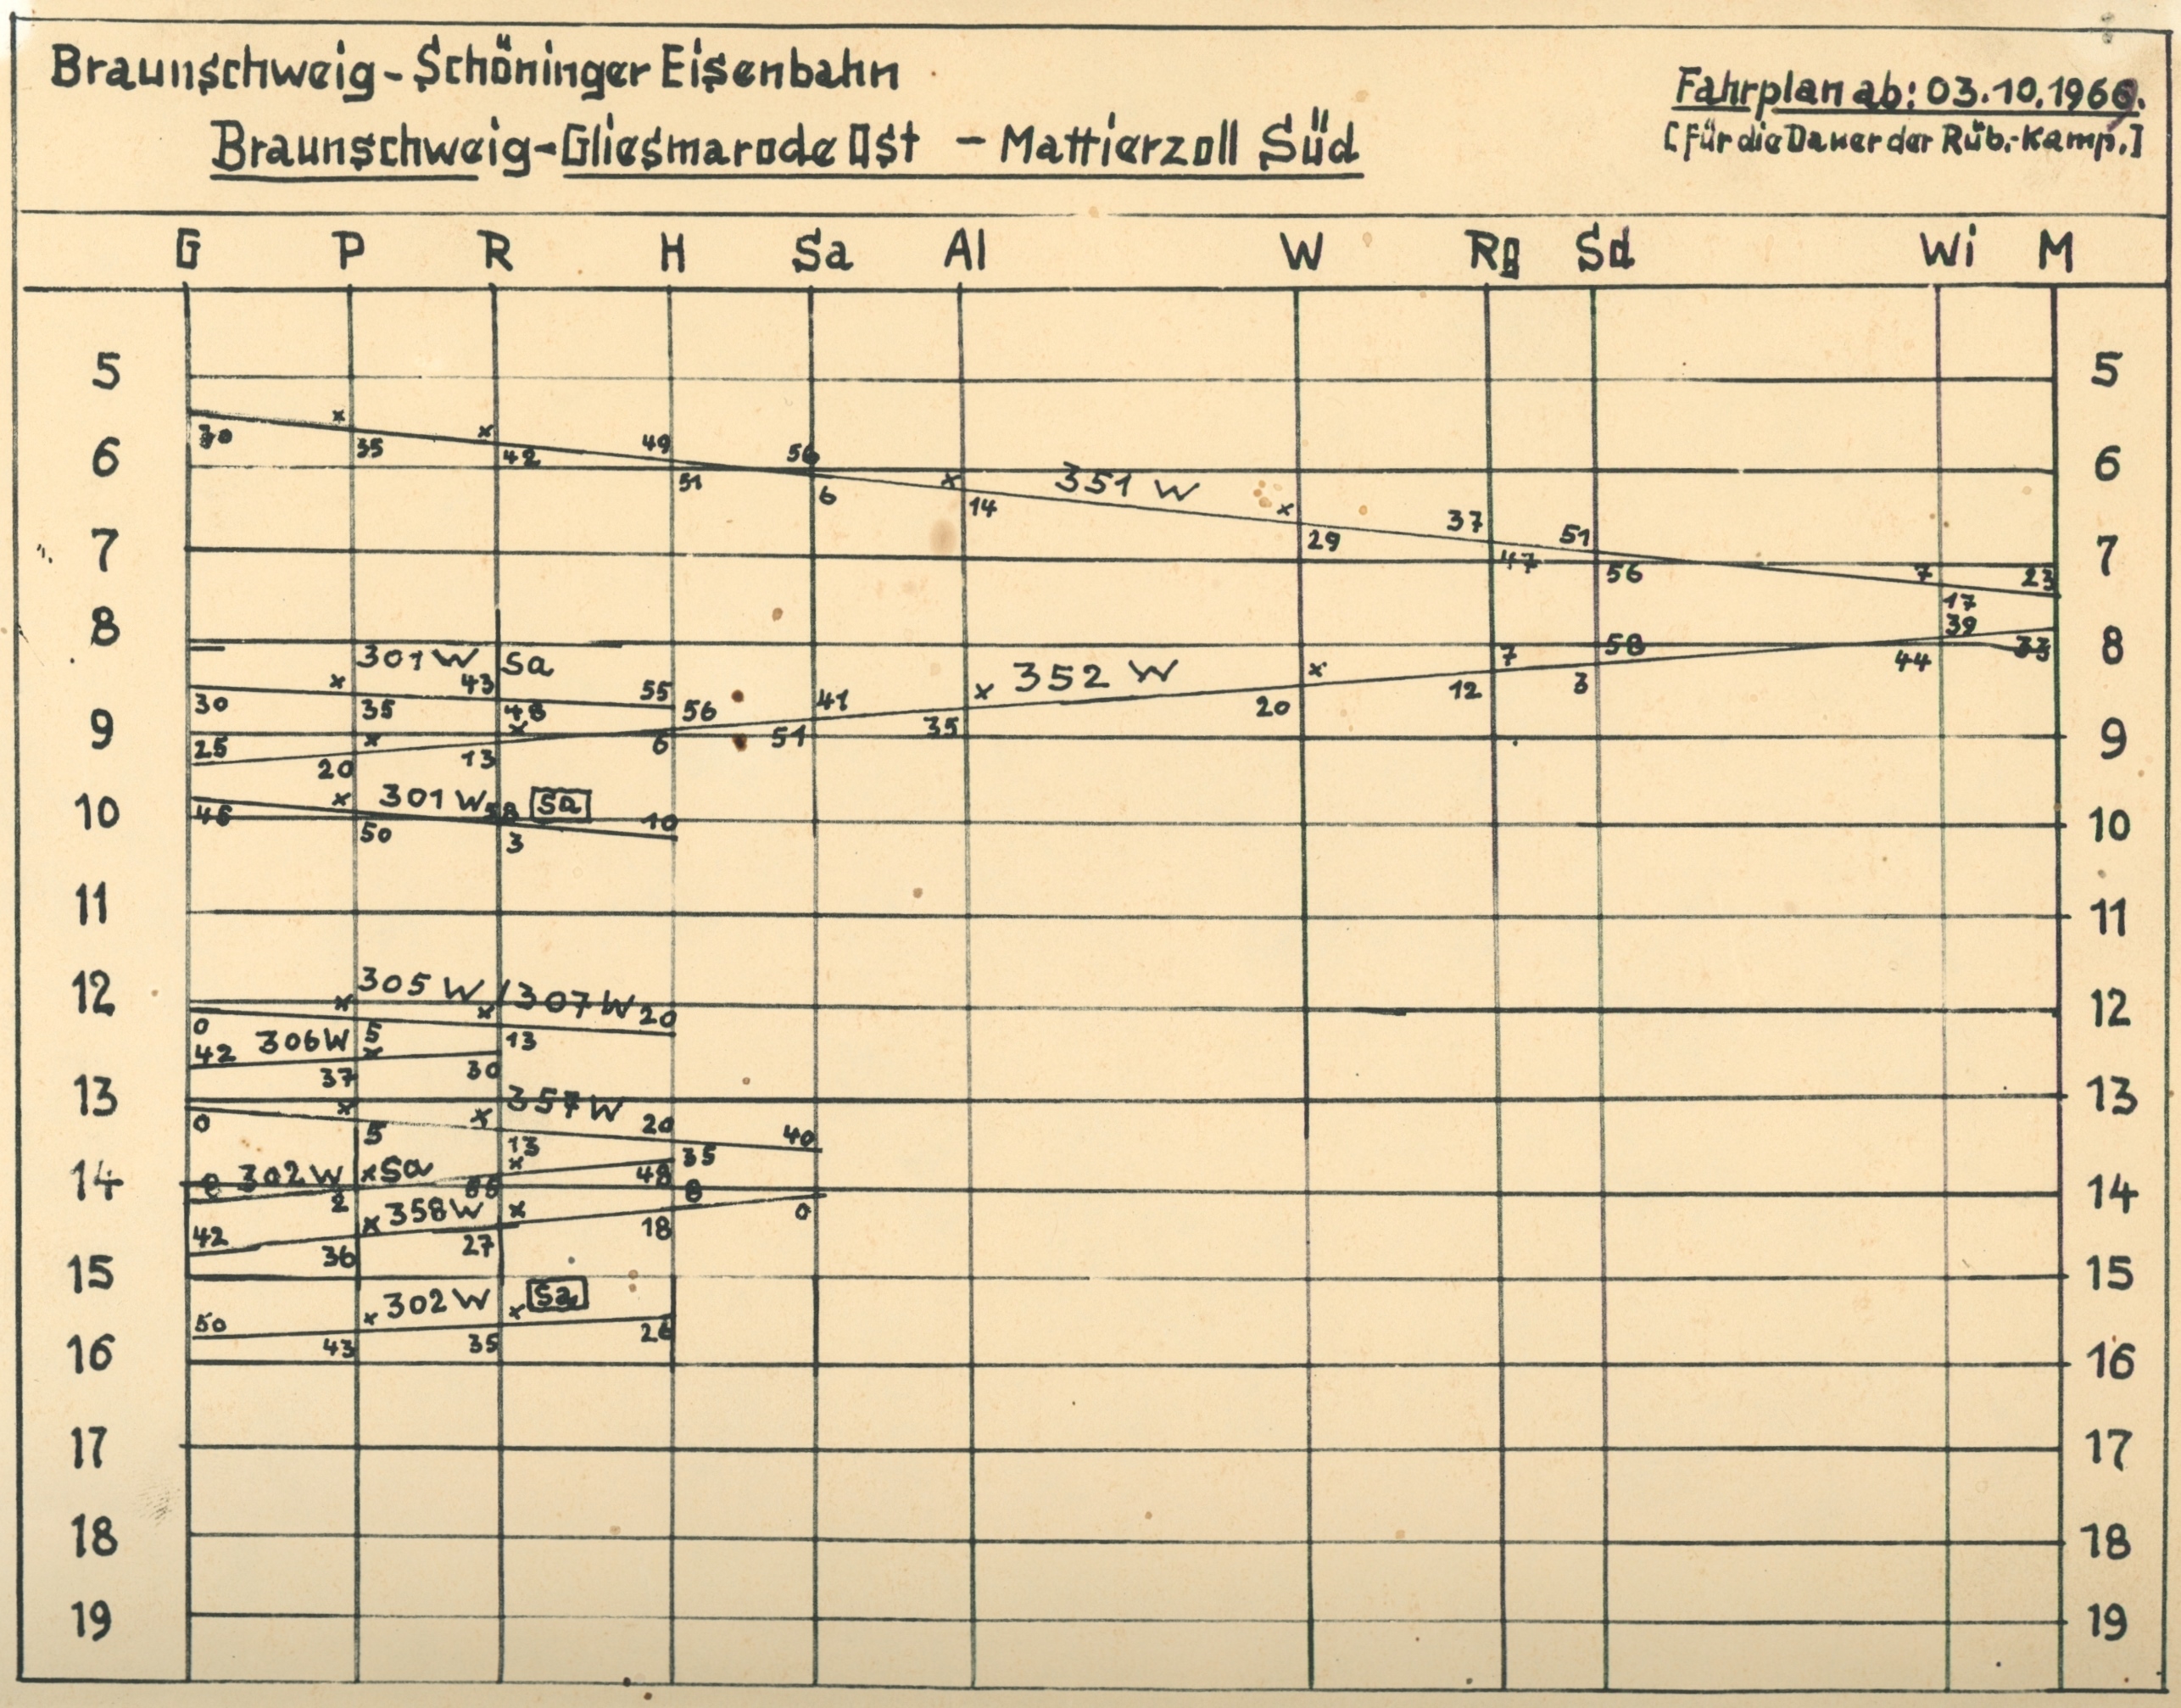 Braunschweig-Schöninger Eisenbahn
Braunschweig-Gliesmarode Ost - Mattierzoll Süd
Fahrplan ab: 03.10.1966.
[Für die Dauer der Rüb.-Kamp.]
G P R H Sa Al W Rg Sd Wi M
5 5
× × 49 56
30 35 42
6 6
51 6 × 14 351 W × 29 37 51
7 7
47 56 7 23
17
8 8
39 33
58 44
301 W Sa
× 43 55 7
30 35 48 56 41 × 352 W × 20 12 3
9 9
25 × 20 × 13 6 51 35
× 301 W 58 Sa 10
10 10
45 50 3
11 11
12 12
305 W / 307 W 20
× ×
0 5 13
42 306 W × 37 30
13 13
× × 357 W 20 40
0 5 13 35
14 14
302 W × Sa × 48
2 8 0
× 358 W ×
42 36 27 18
15 15
× 302 W × Sa
50 43 35 26
16 16
17 17
18 18
19 19